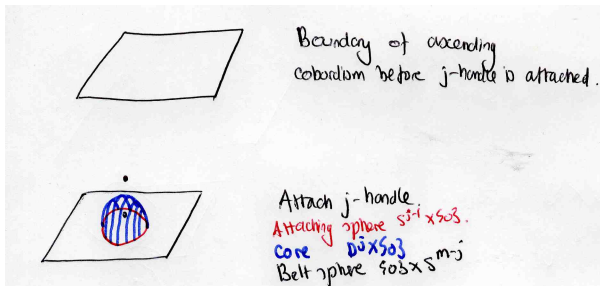 Boundary of ascending
cobordism before j-handle is attached.
Attach j-handle.
Attaching sphere S^{j-1} x {0}.
Core D^j x {0}
Belt sphere {0} x S^{m-j}